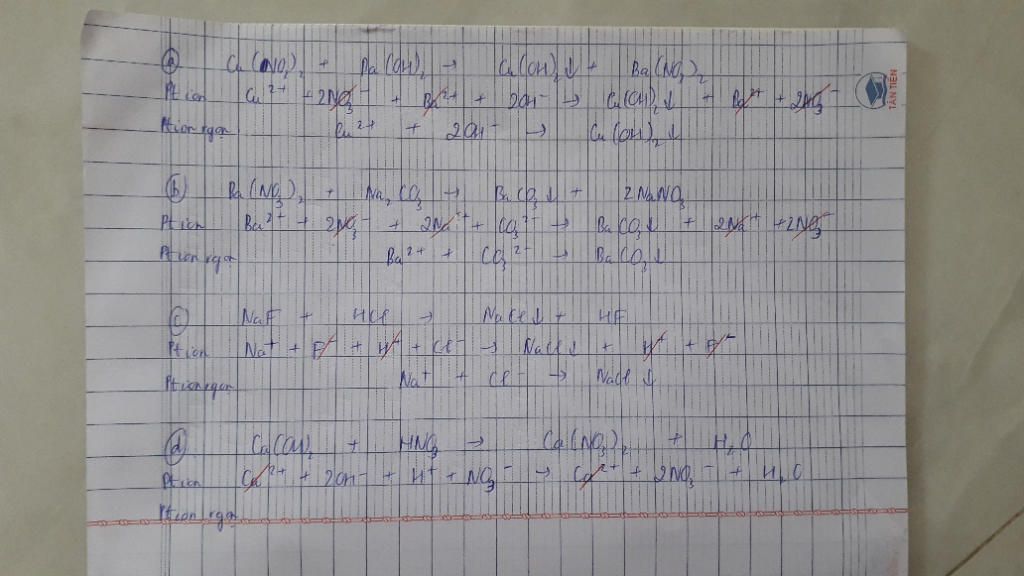 a Cu(NO3)2 + Ba(OH)2 → Cu(OH)2↓ + Ba(NO3)2
Pt ion Cu²⁺ + 2NO3⁻ + Ba²⁺ + 2OH⁻ → Cu(OH)2↓ + Ba²⁺ + 2NO3⁻
Pt ion rgọn Cu²⁺ + 2OH⁻ → Cu(OH)2↓
b Ba(NO3)2 + Na2CO3 → BaCO3↓ + 2NaNO3
Pt ion Ba²⁺ + 2NO3⁻ + 2Na⁺ + CO3²⁻ → BaCO3↓ + 2Na⁺ + 2NO3⁻
Pt ion rgọn Ba²⁺ + CO3²⁻ → BaCO3↓
c NaF + HCl → NaCl↓ + HF
Pt ion Na⁺ + F⁻ + H⁺ + Cl⁻ → NaCl↓ + H⁺ + F⁻
Pt ion rgọn Na⁺ + Cl⁻ → NaCl↓
d Ca(OH)2 + HNO3 → Ca(NO3)2 + H2O
Pt ion Ca²⁺ + 2OH⁻ + H⁺ + NO3⁻ → Ca²⁺ + 2NO3⁻ + H2O
Pt ion rgọn
TÂN TIẾN